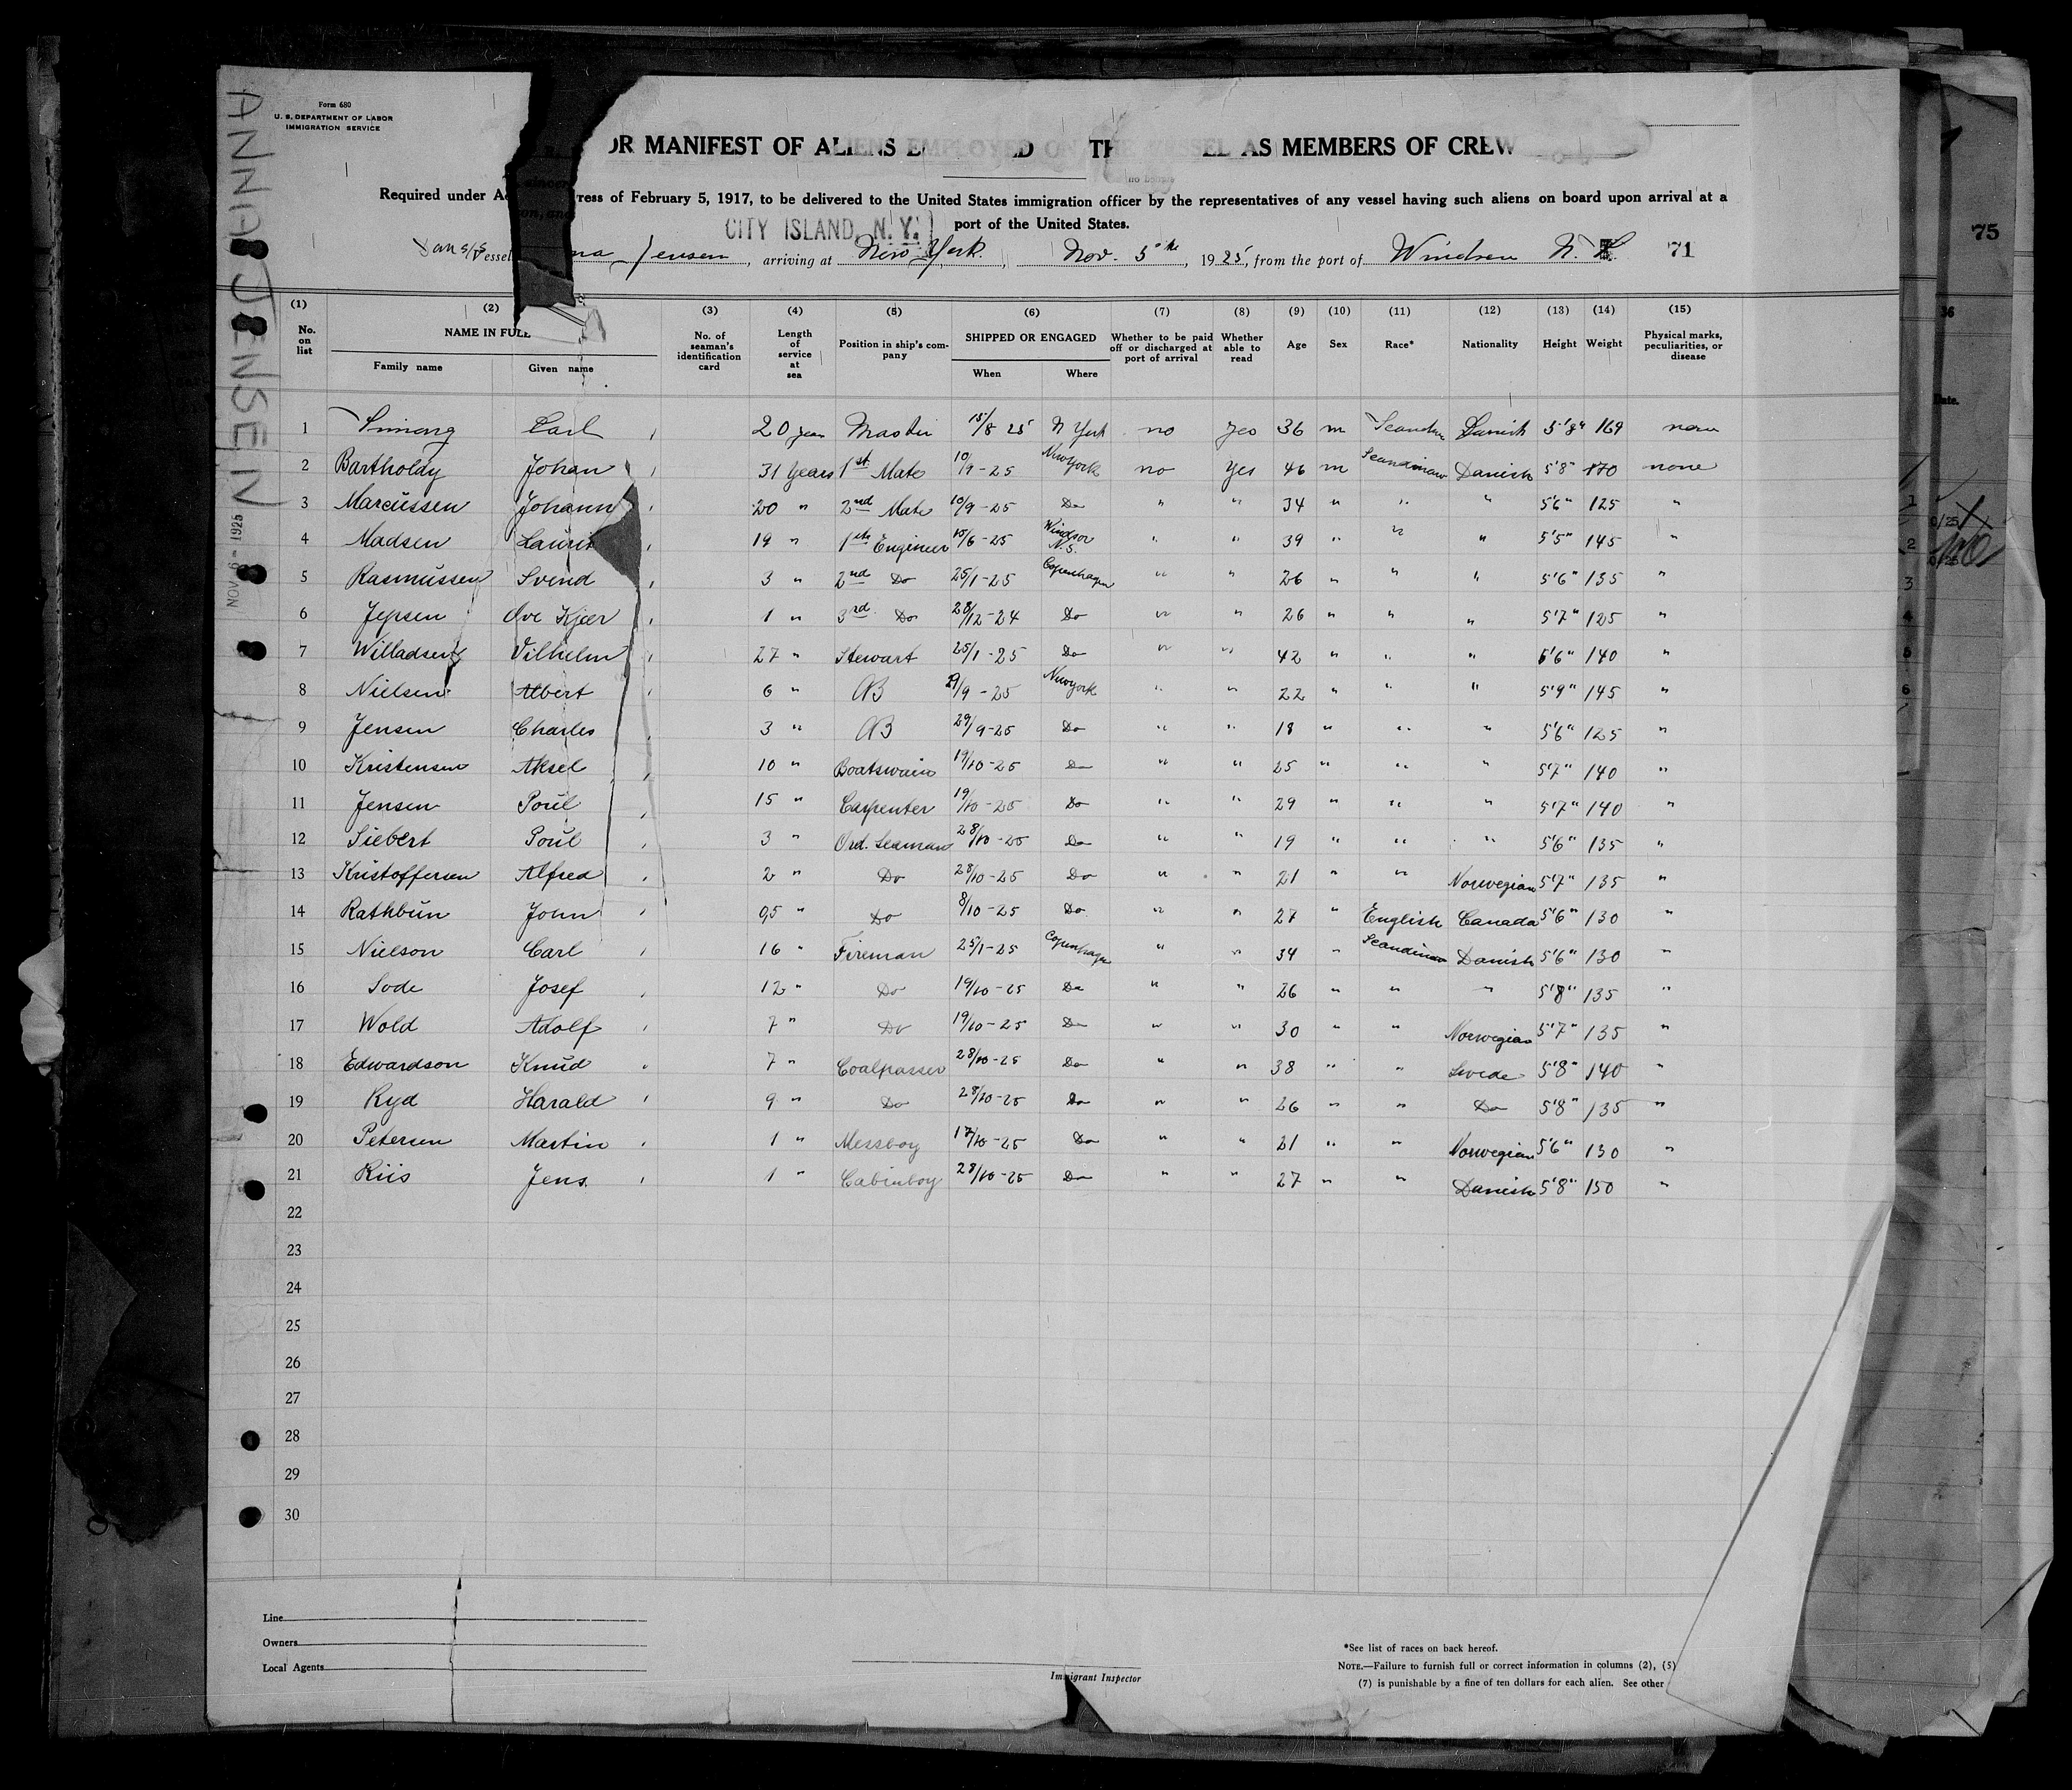 Form 680
U. S. DEPARTMENT OF LABOR
IMMIGRATION SERVICE
ANNA JENSEN
NOV 6 - 1925
OR MANIFEST OF ALIENS EMPLOYED ON THE VESSEL AS MEMBERS OF CREW
Required under Ac ress of February 5, 1917, to be delivered to the United States immigration officer by the representatives of any vessel having such aliens on board upon arrival at a
port of the United States.
CITY ISLAND, N. Y.
Dan S/S Vessel na Jensen, arriving at New York, Nov. 5th, 1925, from the port of Windsor N. S. 71
(1) (2) (3) (4) (5) (6) (7) (8) (9) (10) (11) (12) (13) (14) (15)
No. on list NAME IN FULL Family name Given name No. of seaman's identification card Length of service at sea Position in ship's company SHIPPED OR ENGAGED When Where Whether to be paid off or discharged at port of arrival Whether able to read Age Sex Race* Nationality Height Weight Physical marks, peculiarities, or disease
1 Carl 20 years Master 15/8 25 N York no yes 36 m Danish 5'8" 169 none
2 Bartholdy Johan 31 years 1st Mate 10/9-25 New York no Yes 46 m Scandinav Danish 5'8" 170 none
3 Marcussen Johann 20 " 2nd Mate 10/9-25 Do " " 34 " " " 5'6" 125 "
4 Madsen Laurit 19 " 1th Engineer 10/6-25 Windsor N.S. " " 39 " " " 5'5" 145 "
5 Rasmussen Svend 3 " 2nd Do 25/1-25 Copenhagen " " 26 " " " 5'6" 135 "
6 Jepsen Ove Kjær 1 " 3rd Do 28/12-24 Do " " 26 " " " 5'7" 125 "
7 Willadsen Vilhelm 27 " Stewart 25/1-25 Do " " 42 " " " 5'6" 140 "
8 Nielsen Albert 6 " AB /9-25 New York " " 22 " " " 5'9" 145 "
9 Jensen Charles 3 " AB 29/9-25 Do " " 18 " " " 5'6" 125 "
10 Kristensen Aksel 10 " Boatswain 19/10-25 Do " " 25 " " " 5'7" 140 "
11 Jensen Poul 15 " Carpenter 19/10-25 Do " " 29 " " " 5'7" 140 "
12 Siebert Poul 3 " Ord. Seaman 28/10-25 Do " " 19 " " " 5'6" 135 "
13 Kristoffersen Alfred 2 " Do 28/10-25 Do " " 21 " " Norwegian 5'7" 135 "
14 Rathbun John 0,5 " Do 8/10-25 Do " " 27 " English Canada 5'6" 130 "
15 Nielson Carl 16 " Fireman 25/1-25 Copenhagen " " 34 " Scandinav Danish 5'6" 130 "
16 Sode Josef 12 " Do 19/10-25 Do " " 26 " " " 5'8" 135 "
17 Wold Adolf 7 " Do 19/10-25 Do " " 30 " " Norwegian 5'7" 135 "
18 Edwardson Knud 7 " Coalpasser 28/10-25 Do " " 38 " " Swede 5'8" 140 "
19 Ryd Harald 9 " Do 28/10-25 Do " " 26 " " Do 5'8" 135 "
20 Petersen Martin 1 " Messboy 17/10-25 Do " " 21 " " Norwegian 5'6" 130 "
21 Riis Jens. 1 " Cabinboy 28/10-25 Do " " 27 " " Danish 5'8" 150 "
22
23
24
25
26
27
28
29
30
Line
Owners
Local Agents
Immigrant Inspector
*See list of races on back hereof.
NOTE.—Failure to furnish full or correct information in columns (2), (5)
(7) is punishable by a fine of ten dollars for each alien. See other
75
36
Date.
1
2
3
4
5
6